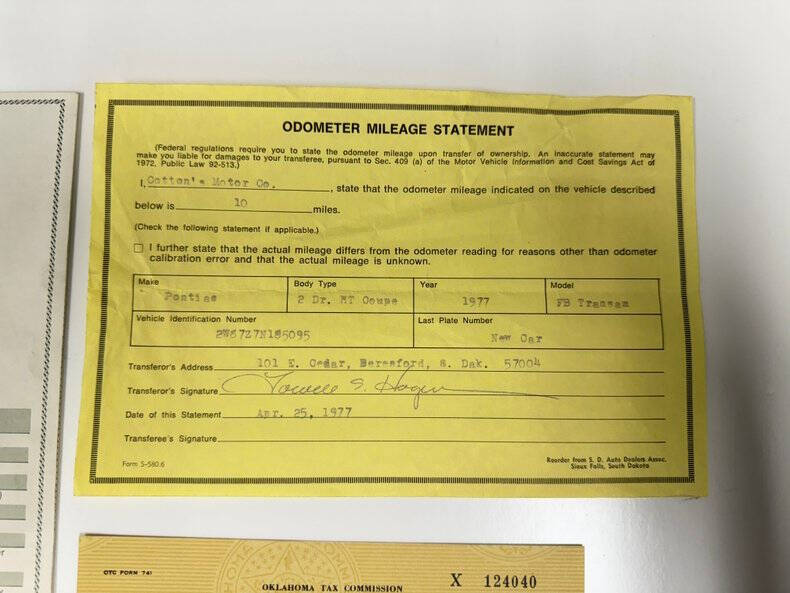 ODOMETER MILEAGE STATEMENT
(Federal regulations require you to state the odometer mileage upon transfer of ownership. An inaccurate statement may
make you liable for damages to your transferee, pursuant to Sec. 409 (a) of the Motor Vehicle Information and Cost Savings Act of
1972, Public Law 92-513.)
I, Cotton's Motor Co., state that the odometer mileage indicated on the vehicle described
below is 10 miles.
(Check the following statement if applicable.)
I further state that the actual mileage differs from the odometer reading for reasons other than odometer
calibration error and that the actual mileage is unknown.
Make Body Type Year Model
Pontiac 2 Dr. HT Coupe 1977 FB Transam
Vehicle Identification Number Last Plate Number
2W87Z7N185095 New Car
Transferor's Address 101 E. Cedar, Beresford, S. Dak. 57004
Transferor's Signature Lowell S. Hagen
Date of this Statement Apr. 25, 1977
Transferee's Signature
Form S-580.6
Reorder from S. D. Auto Dealers Assoc.
Sioux Falls, South Dakota
OTC FORM 741
OKLAHOMA TAX COMMISSION X 124040